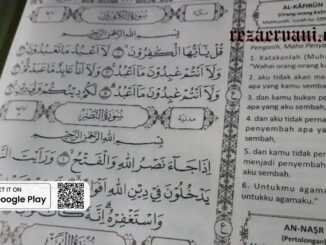 سُورَةُ الْكَافِرُونَ
مكية
بِسْمِ اللهِ الرَّحْمٰنِ الرَّحِيْمِ
قُلْ يٰٓاَيُّهَا الْكٰفِرُوْنَ لَآ اَعْبُدُ مَا تَعْبُدُوْنَ
وَلَآ اَنْتُمْ عٰبِدُوْنَ مَآ اَعْبُدُ وَلَآ اَنَا۠ عَابِدٌ مَّا عَبَدْتُّمْ
وَلَآ اَنْتُمْ عٰبِدُوْنَ مَآ اَعْبُدُ لَكُمْ دِيْنُكُمْ وَلِيَ دِيْنِ
سُورَةُ النَّصْرِ
مدنية
بِسْمِ اللهِ الرَّحْمٰنِ الرَّحِيْمِ
اِذَا جَآءَ نَصْرُ اللهِ وَالْفَتْحُ وَرَاَيْتَ النَّاسَ
يَدْخُلُوْنَ فِيْ دِيْنِ اللهِ اَفْوَاجًا
وَاسْتَغْفِرْهُ اِنَّهٗ كَانَ
rezaervani.
AL-KĀFIRŪN
(Orang-orang kafir
Pengasih, Maha Penya
1. Katakanlah (Muh
"Wahai orang-orang ka
2. aku tidak akan me
apa yang kamu sembah
3. dan kamu bukan pe
apa yang aku sembah,
4. dan aku tidak perna
penyembah apa yan
sembah,
5. dan kamu tidak per
menjadi penyembah a
aku sembah.
6. Untukmu agamamu
untukku agamaku."
AN-NAṢR
(Pertolongan
GET IT ON
Google Play